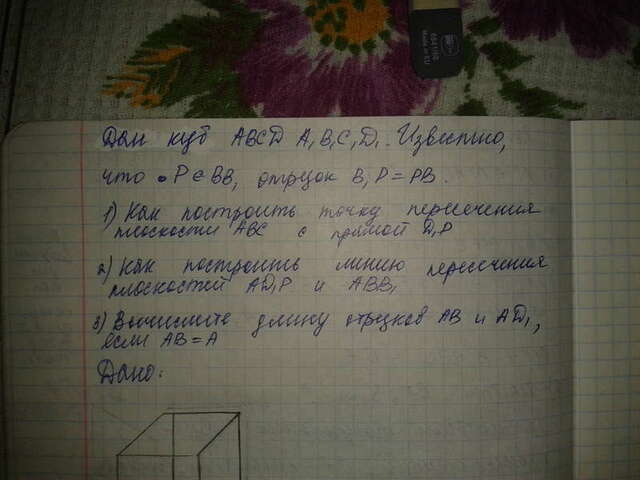 Дан куб ABCD A₁B₁C₁D₁. Известно,
что • P ∈ BB₁ отрезок B₁P = PB.
1) Как построить точку пересечения
плоскости ABC с прямой D₁P
2) Как построить линию пересечения
плоскостей AD₁P и ABB₁
3) Вычислите длину отрезков AB и AD₁,
если AB = A
Дано:
664180
Made in EU